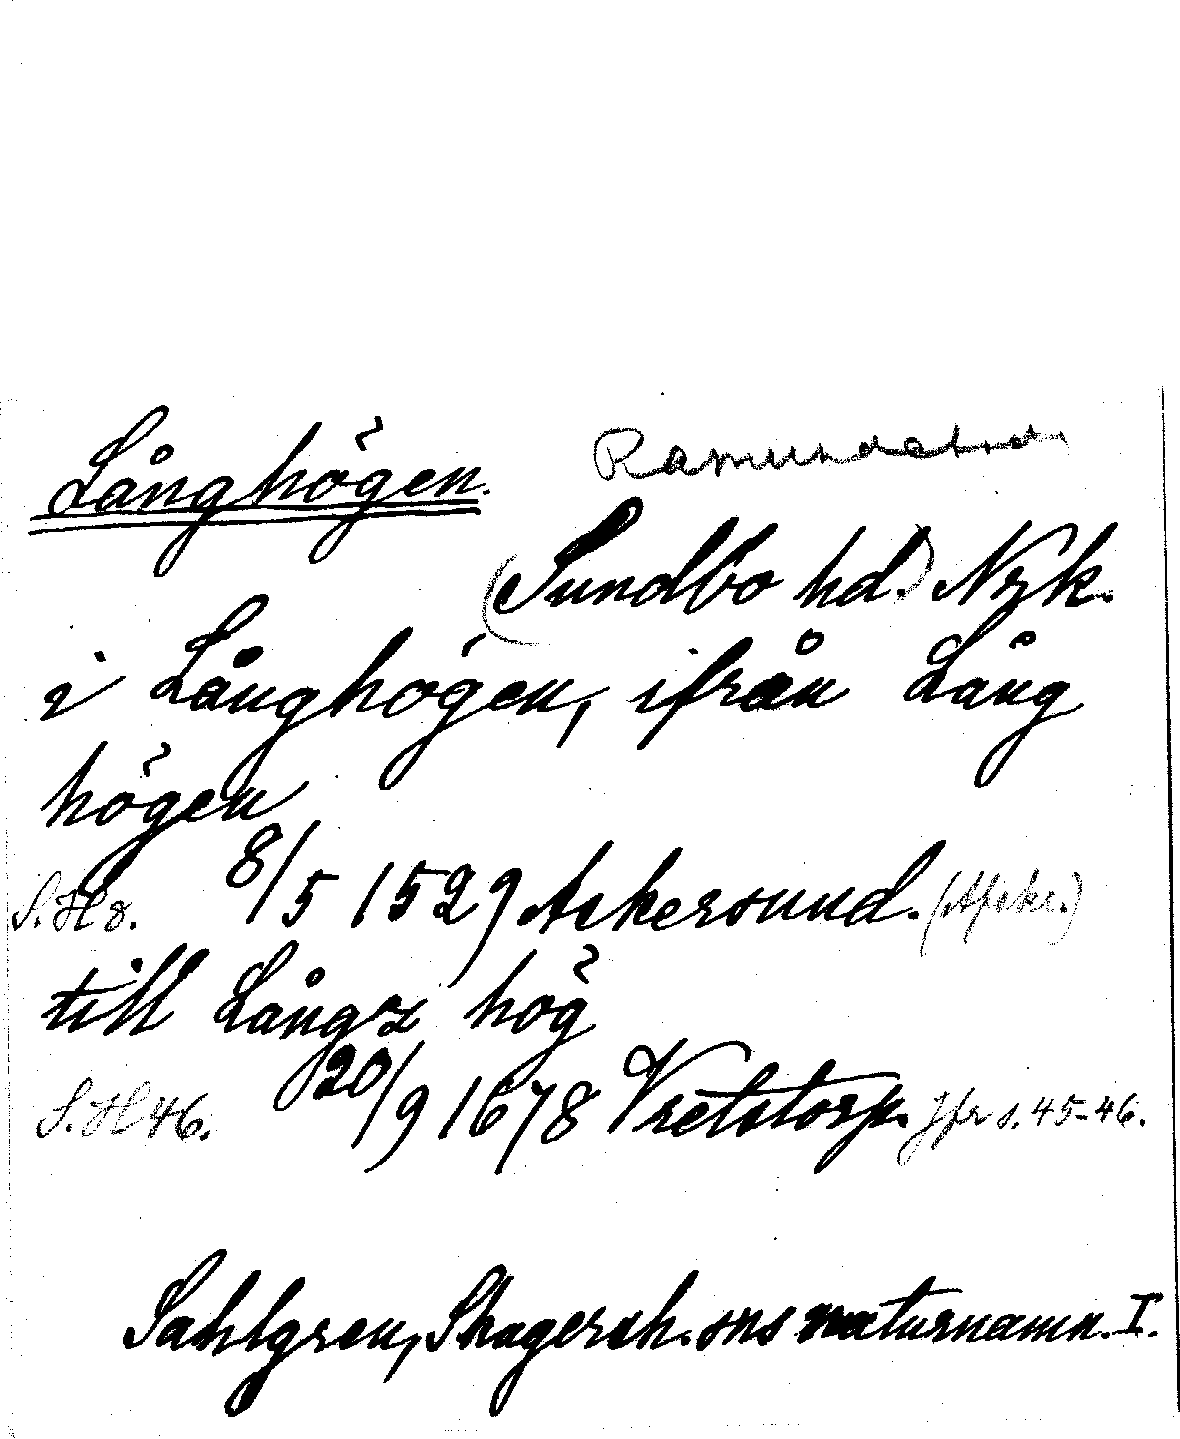 Långhögen. Ramundaboda
(Sundbo hd.) Nrk.
i Långhögen, ifrån Lång
högen
S. H 8. 8/5 1529 Askersund. (Afskr.)
till Långz hög
S. H 46. 20/9 1678 Vretstorp. Jfr s. 45-46.
Sahlgren, Skagersh. sns naturnamn. I.